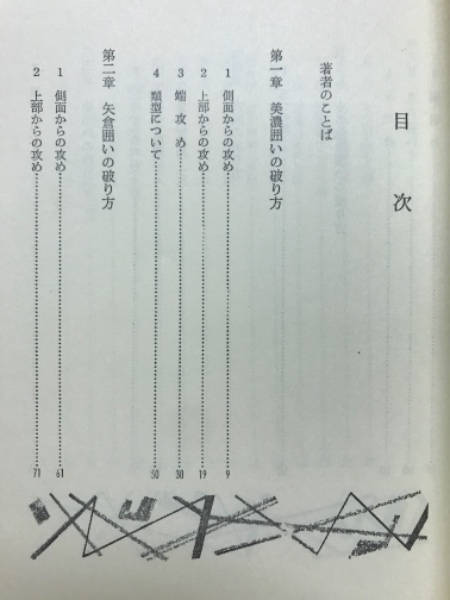 目次
著者のことば
第一章 美濃囲いの破り方
1 側面からの攻め……………………9
2 上部からの攻め……………………19
3 端攻め……………………30
4 類型について……………………50
第二章 矢倉囲いの破り方
1 側面からの攻め……………………61
2 上部からの攻め……………………71